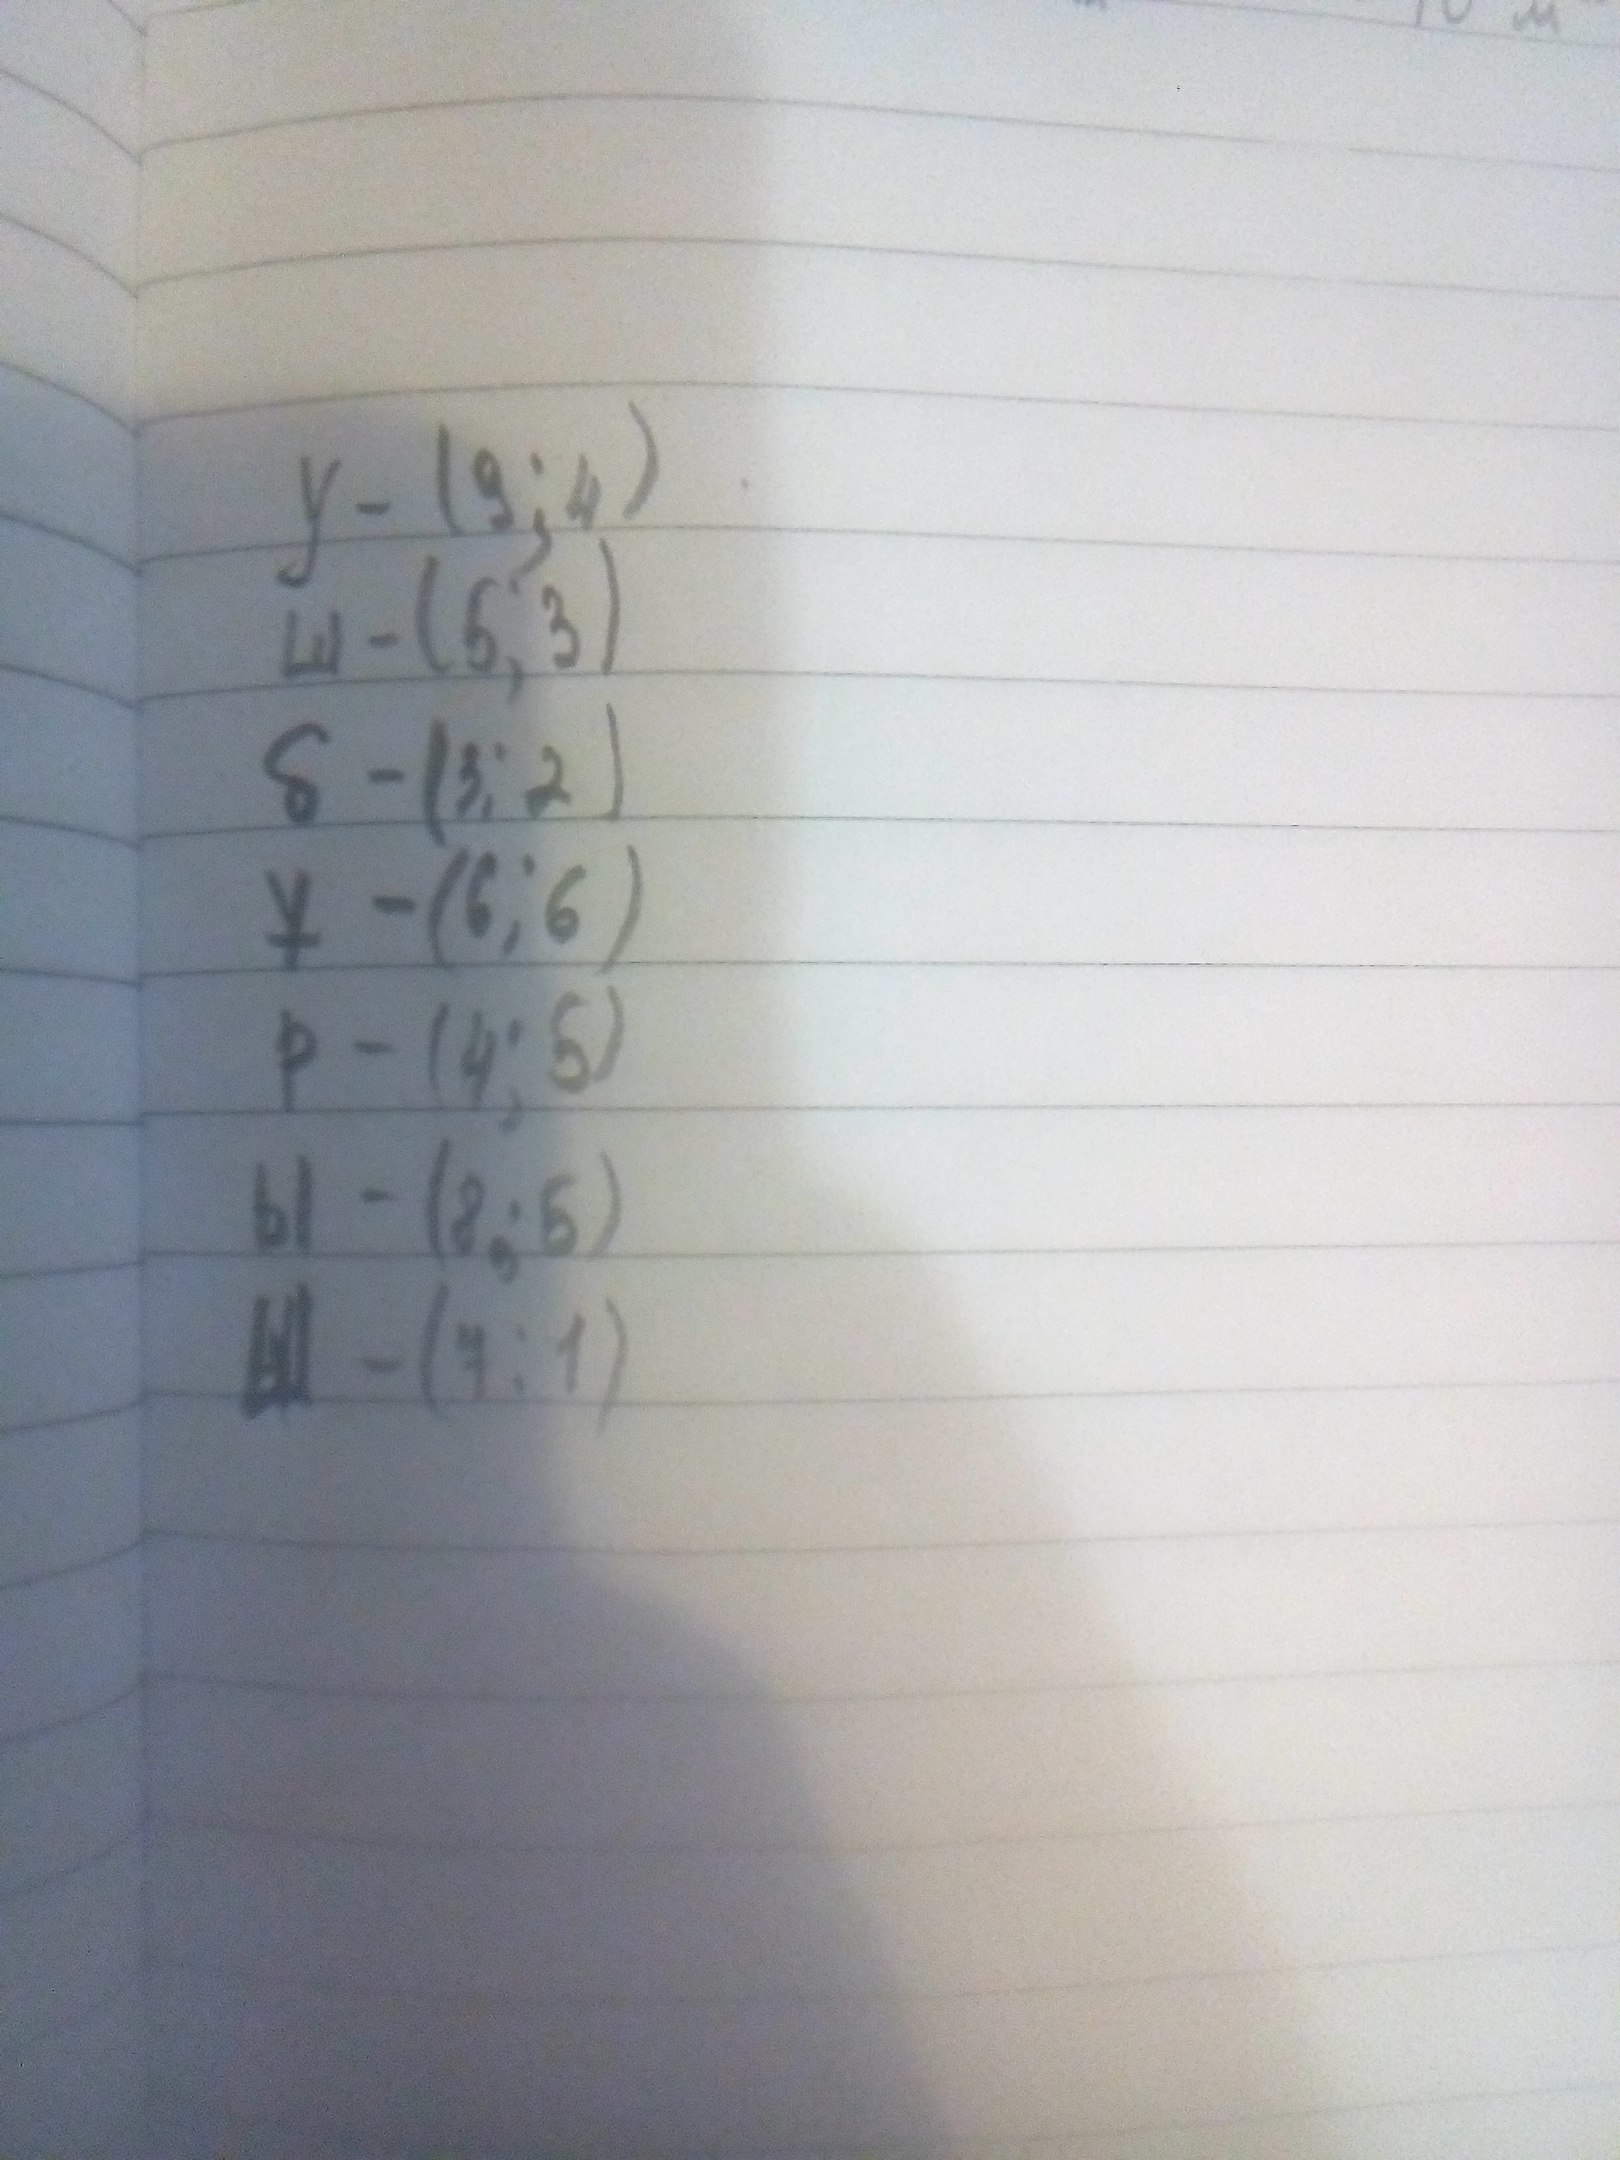 у - (9; 4)
ш - (5; 3)
б - (3; 2)
ұ - (6; 6)
р - (4; 5)
ы - (8; 5)
- (7; 1)